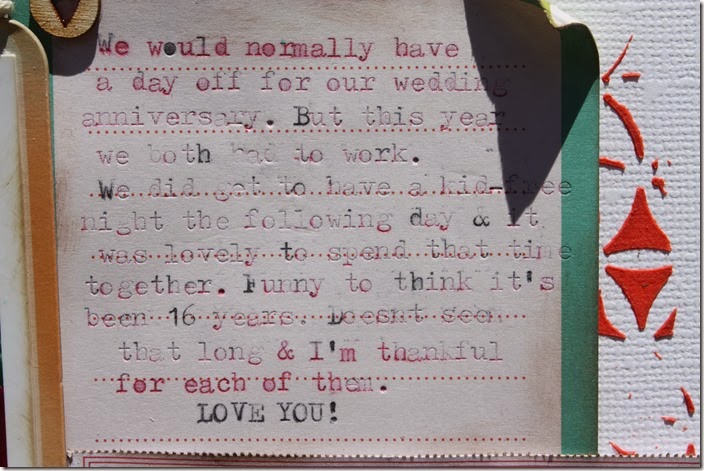 We would normally have
a day off for our wedding
anniversary. But this year
we both had to work.
We did get to have a kid-free
night the following day & it
was lovely to spend that time
together. Funny to think it's
been 16 years. Doesnt seem
that long & I'm thankful
for each of them.
LOVE YOU!